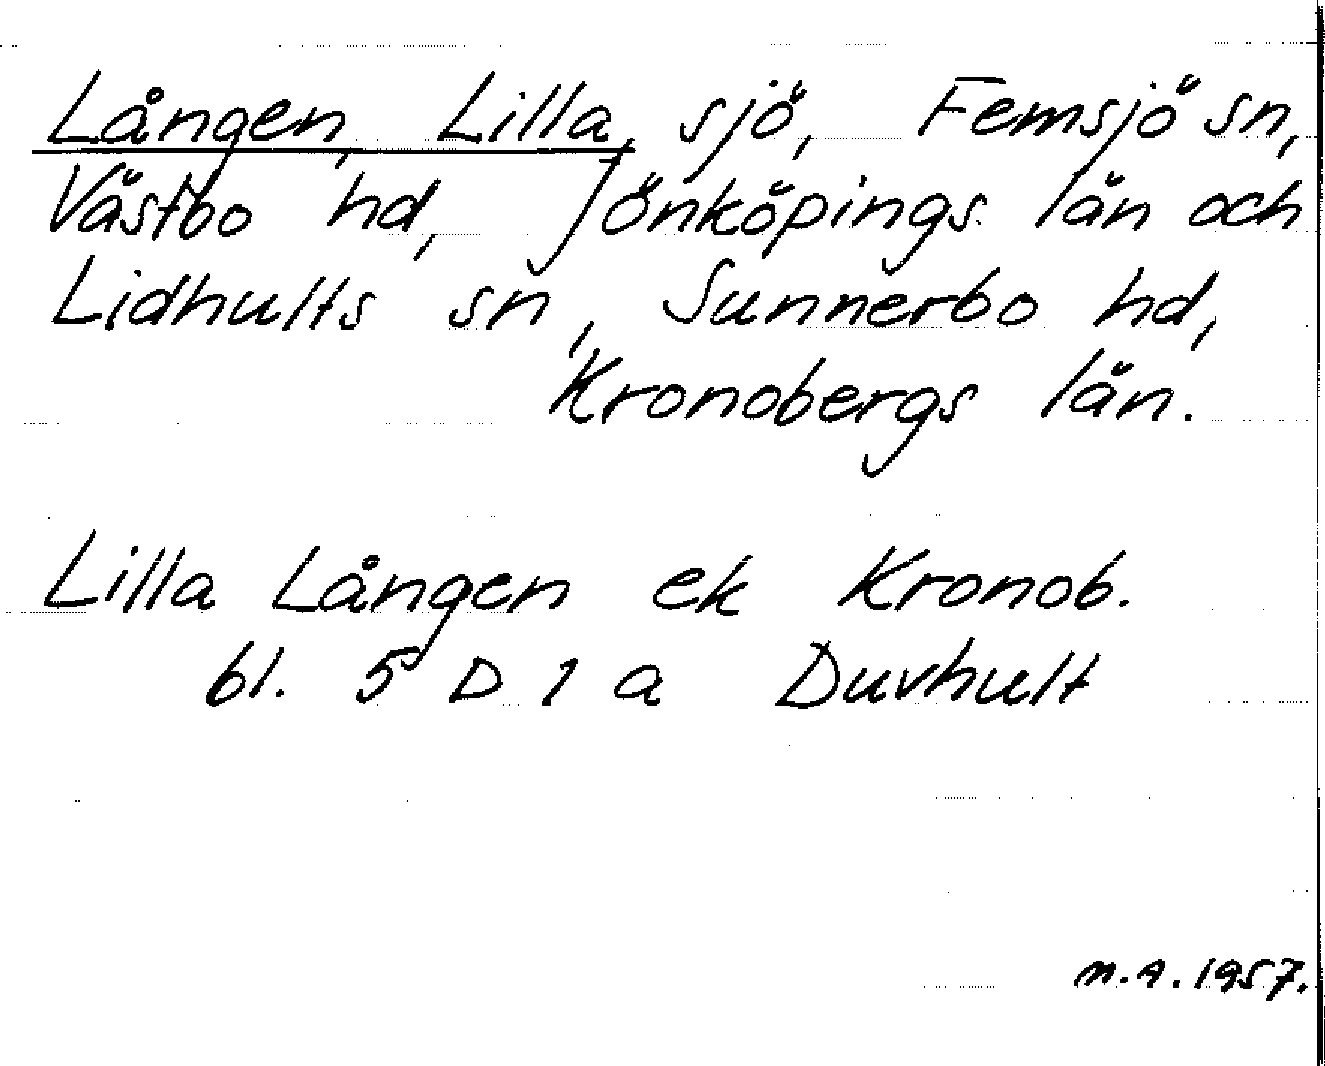 Lången, Lilla, sjö, Femsjö sn,
Västbo hd, Jönköpings län och
Lidhults sn, Sunnerbo hd,
Kronobergs län.
Lilla Lången ek Kronob.
bl. 5 D 1 a Duvhult
m.A.1957.